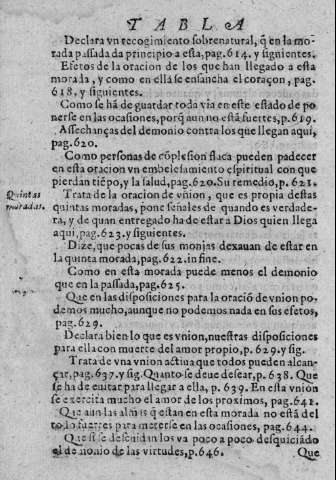 TABLA
Declara vn recogimiento sobrenatural, q̃ en la mo-
rada passada da principio a esta, pag.614. y siguientes.
Efetos de la oracion de los que han llegado a esta
morada, y como en ella se ensancha el coraçon, pag.
618. y siguientes.
Como se hã de guardar toda via en este estado de po
nerse en las ocasiones, porq̃ aun no està fuertes, p.619.
Assechanças del demonio contra los que llegan aqui,
pag.620.
Como personas de cõplesion flaca pueden padecer
en esta oracion vn embelesamiento espiritual con que
pierdan tiẽpo, y la salud, pag.620. Su remedio, p. 621.
Quintas
moradas.
Trata de la oracion de vnion, que es propia destas
quintas moradas, pone señales de quando es verdade-
ra, y de quan entregado ha de estar a Dios quien llega
aqui, pag.623. y siguientes.
Dize, que pocas de sus monjas dexauan de estar en
la quinta morada, pag.622. in fine.
Como en esta morada puede menos el demonio
que en la passada, pag.625.
Que en las disposiciones para la oraciõ de vnion po-
demos mucho, aunque no podemos nada en sus efetos,
pag.629.
Declara bien lo que es vnion, nuestras disposiciones
para ella con muerte del amor propio, p.629. y sig.
Trata de vna vnion actiua que todos pueden alcan-
çar, pag.637. y sig. Quanto se deue desear, p.638. Que
se ha de euitar para llegar a ella, p. 639. En esta vniõn
se exercita mucho el amor de los proximos, pag.641.
Que aun las almas q̃ estan en esta morada no està del
todo fuertes para meterse en las ocasiones, pag.644.
Que si se descuidan los va poco a poco desquiciãdo
el demonio de las virtudes, p.646. Que